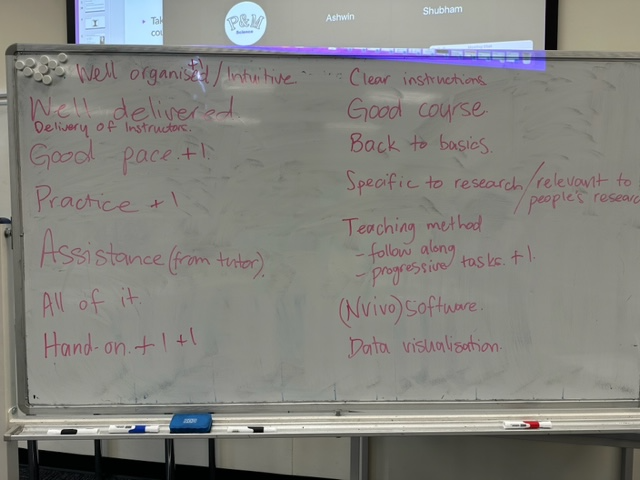 Tak
cou
P&M
Ashwin
Shubham
Well organised/Intuitive ......
Well delivered.
Delivery of Instructors.
Good pace. +1
Practice +1
Assistance (from tutor).
All of it.
Hand-on. +1 +1
Clear instructions
Good course.
Back to basics.
Specific to research/relevant to
people's researc
Teaching method
- follow along
- progressive tasks. +1.
(NVivo) Software.
Data visualisation.